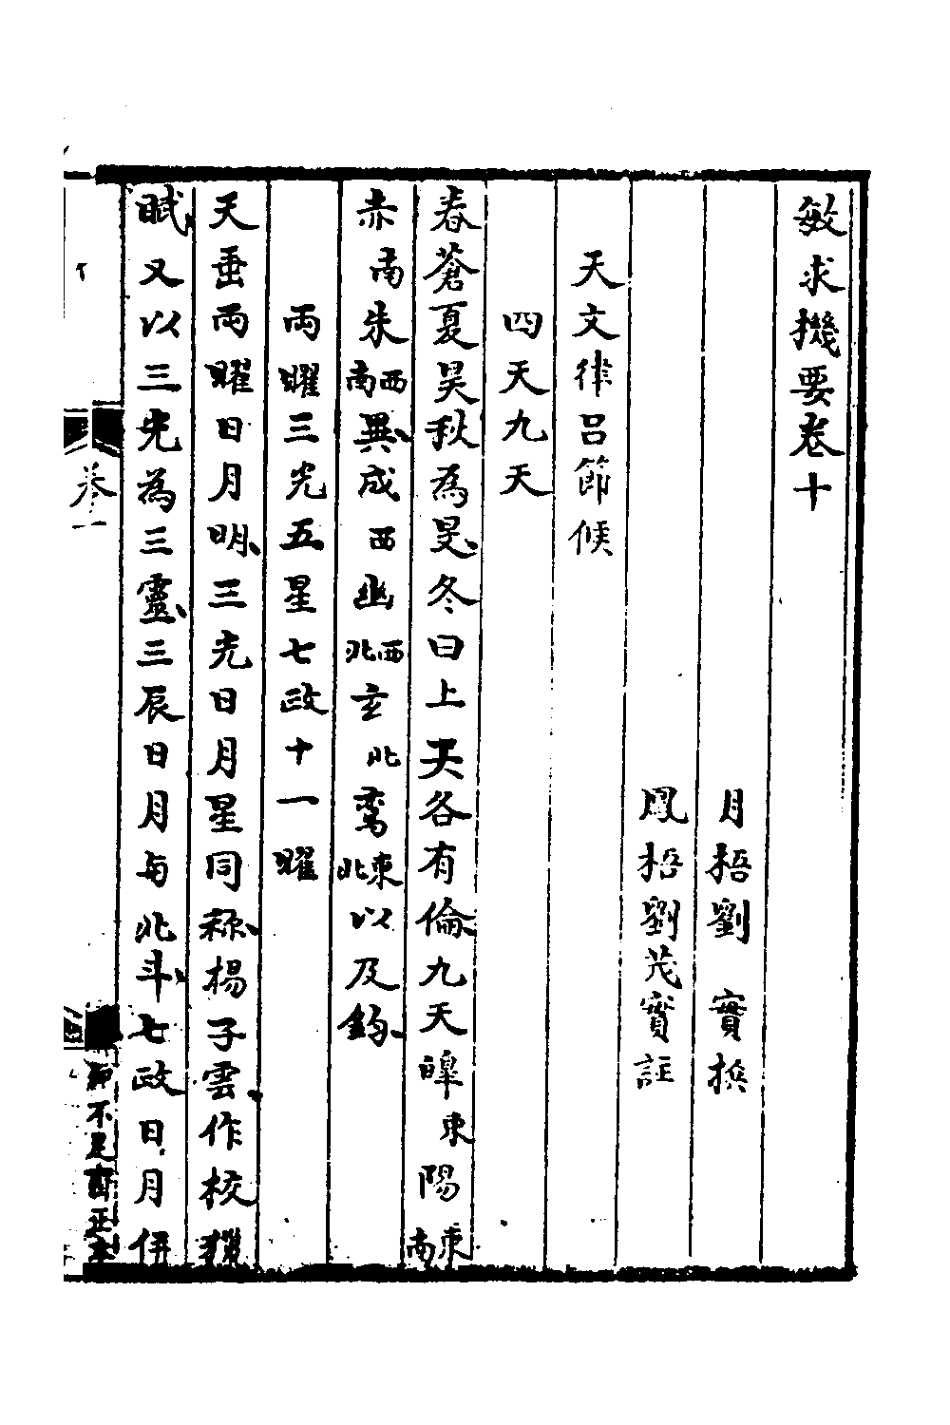 敏求機要卷十
月梧劉實撰
鳳梧劉茂實註
天文律呂節候
四天九天
春蒼夏昊秋為旻冬曰上天各有倫九天皥東陽東南
赤南朱西南異成西幽西北玄北鸞東北以及鈞
兩曜三光五星七政十一曜
天垂兩曜日月明三光日月星同称楊子雲作校獵
賦又以三光為三靈三辰日月与北斗七政日月併
卷十
知不足齋正本